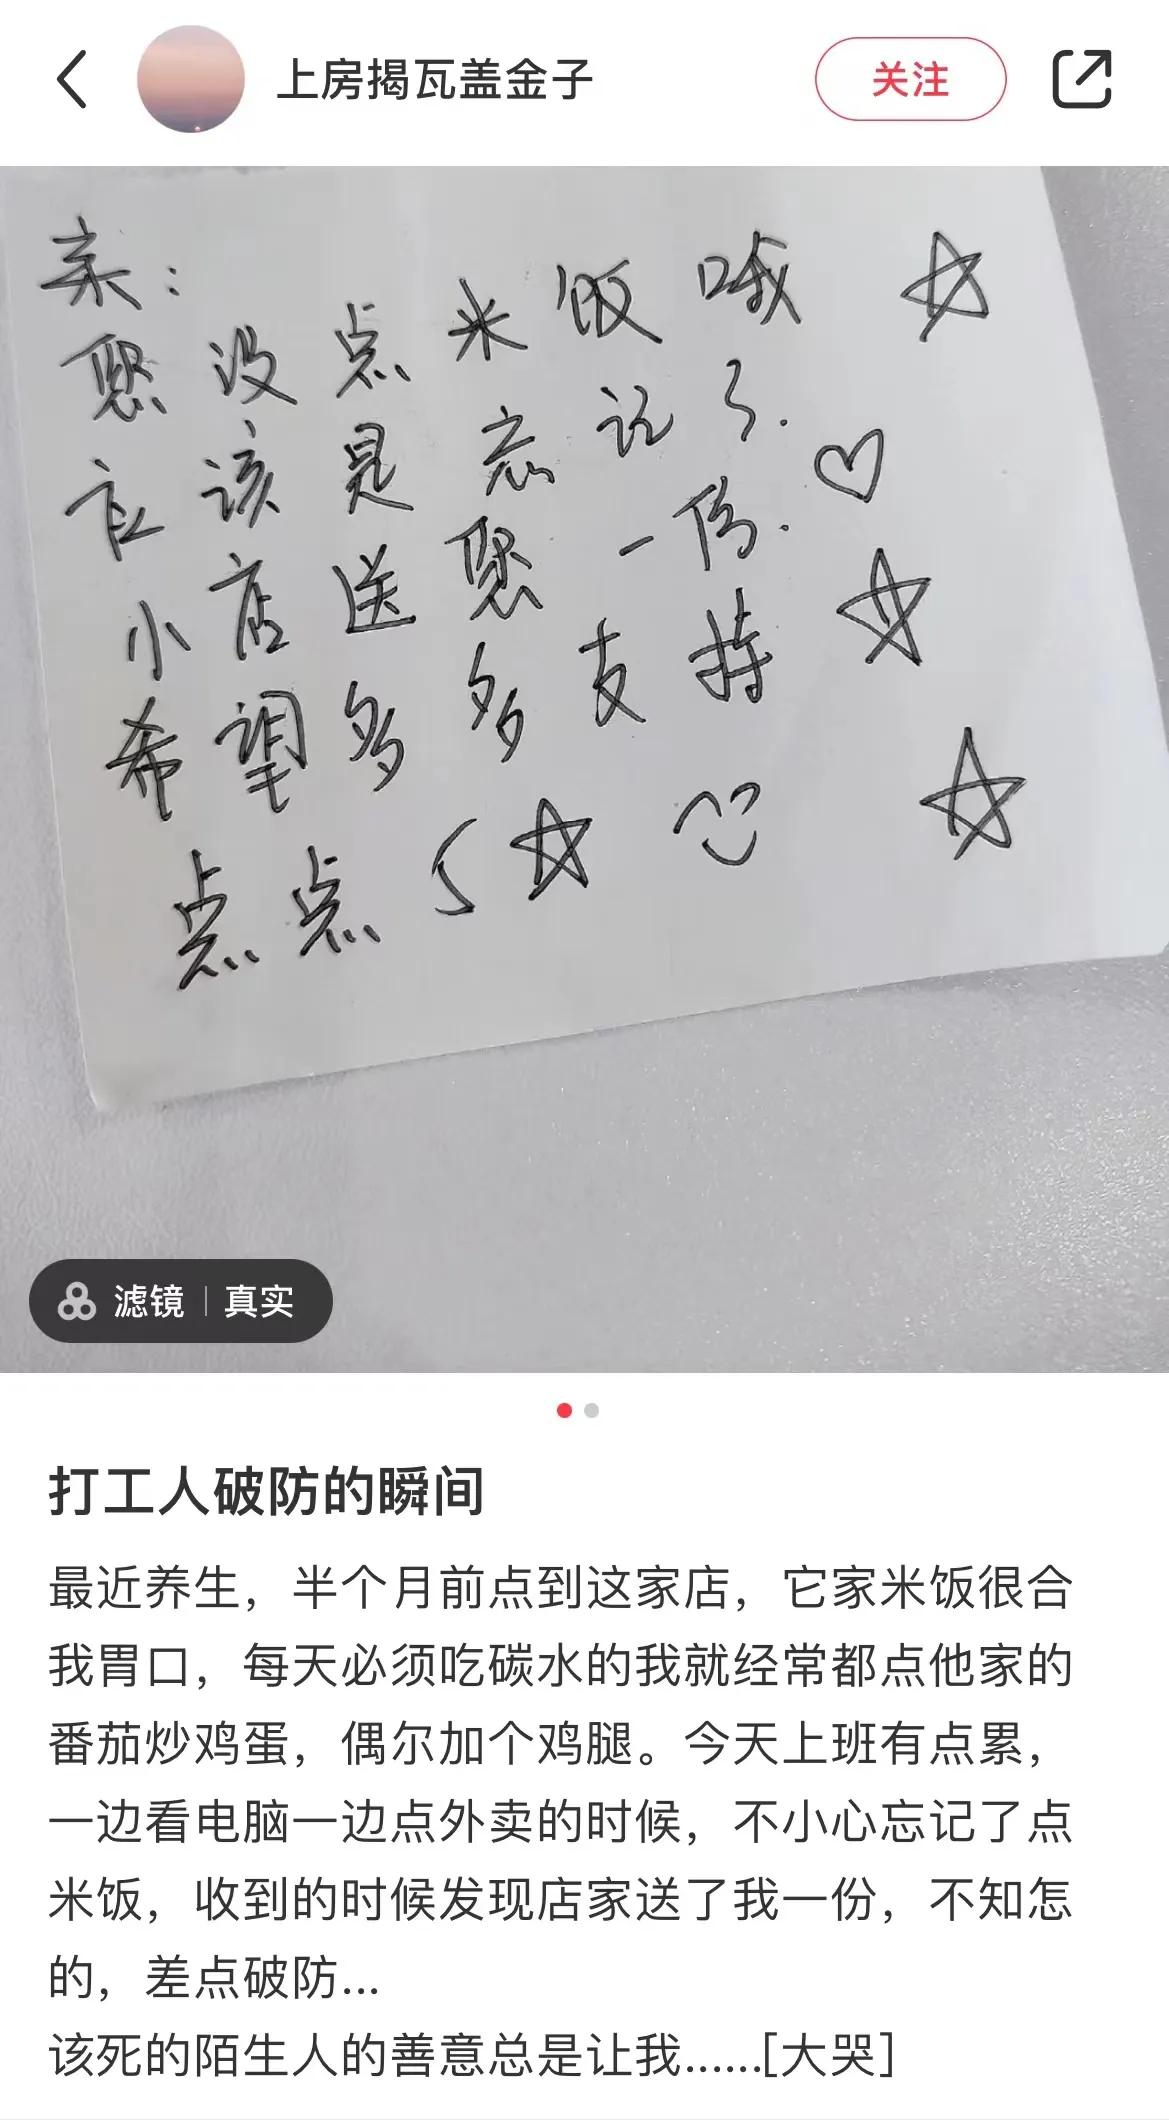 上房揭瓦盖金子
关注
亲：
您没点米饭哦
应该是忘记了.
小店送您一份.
希望多多支持
点点5
滤镜 真实
打工人破防的瞬间
最近养生，半个月前点到这家店，它家米饭很合
我胃口，每天必须吃碳水的我就经常都点他家的
番茄炒鸡蛋，偶尔加个鸡腿。今天上班有点累，
一边看电脑一边点外卖的时候，不小心忘记了点
米饭，收到的时候发现店家送了我一份，不知怎
的，差点破防...
该死的陌生人的善意总是让我......[大哭]